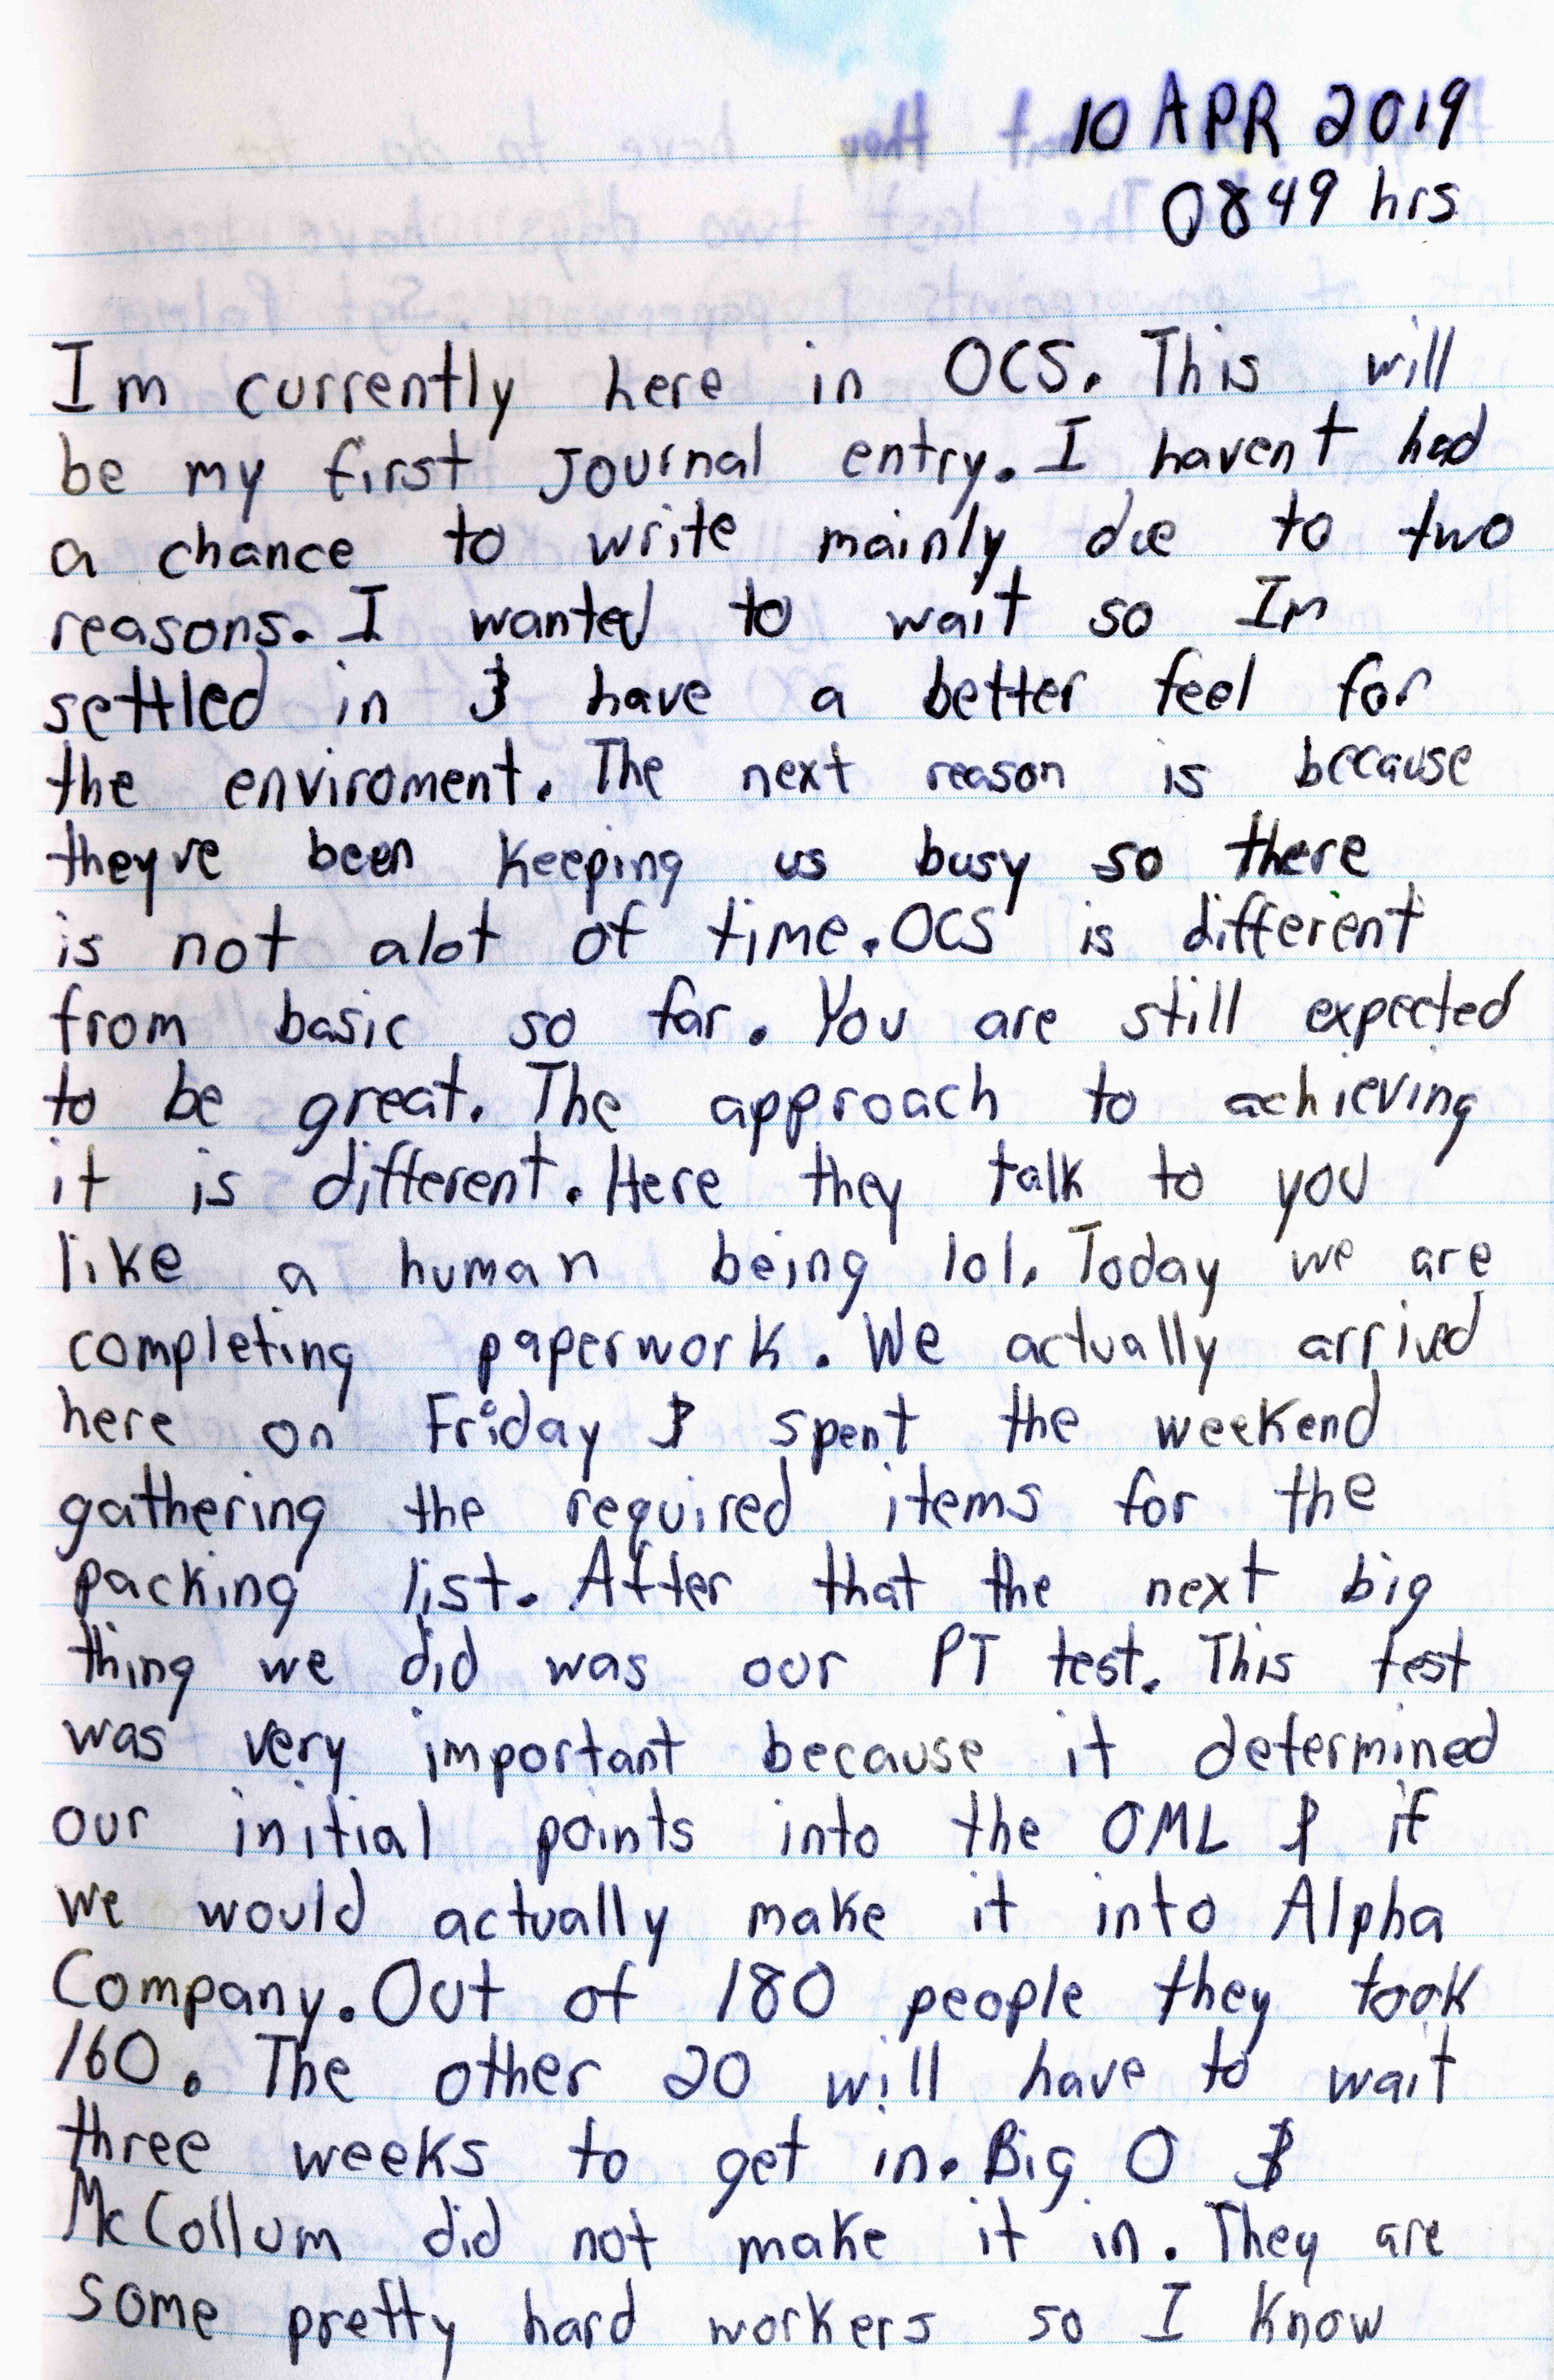 10 APR 2019
0849 hrs
Im currently here in OCS. This will
be my first journal entry. I havent had
a chance to write mainly due to two
reasons. I wanted to wait so Im
settled in & have a better feel for
the enviroment. The next reason is because
theyre been keeping us busy so there
is not alot of time. OCS is different
from basic so far. You are still expected
to be great. The approach to achieving
it is different. Here they talk to you
like a human being lol. Today we are
completing paperwork. We actually arrived
here on Friday & spent the weekend
gathering the required items for the
packing list. After that the next big
thing we did was our PT test. This test
was very important because it determined
our initial points into the OML & if
we would actually make it into Alpha
Company. Out of 180 people they took
160. The other 20 will have to wait
three weeks to get in. Big O &
McCollum did not make it in. They are
some pretty hard workers so I know